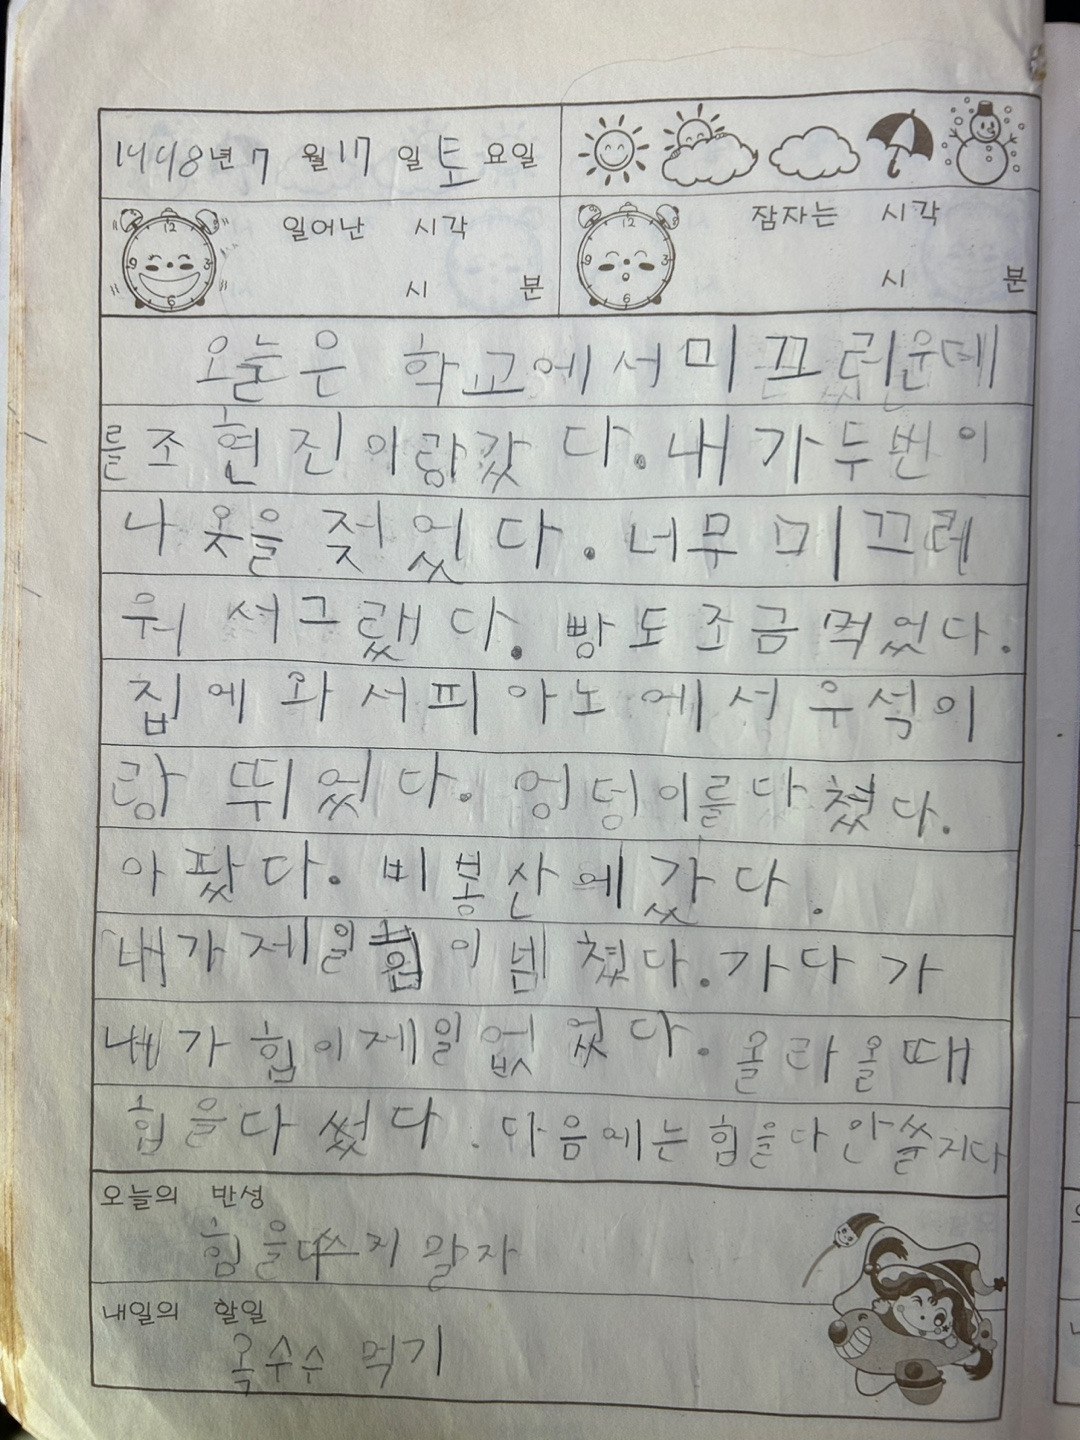 1998년 7 월 17 일 토 요일
일어난 시각
시 분
잠자는 시각
시 분
오눌은 학교에서 미끄러운데
를 조현진이랑 갔다. 내가 두번이
나 옷을 젖었다. 너무 미끄레
워서 그랬다. 빵도 조금 먹었다.
집에 와서 피아노에서 우석이
랑 뛰었다. 엉덩이를 다쳤다.
아팠다. 비봉산에 갔다.
내가 제일 힘이 넴쳤다. 가다가
내가 힘이 제일 없었다. 올라올때
힘을 다 썼다. 다음에는 힘을 다 안쓸지다
오늘의 반성
힘을 다 쓰지 말자
내일의 할일
옥수수 먹기